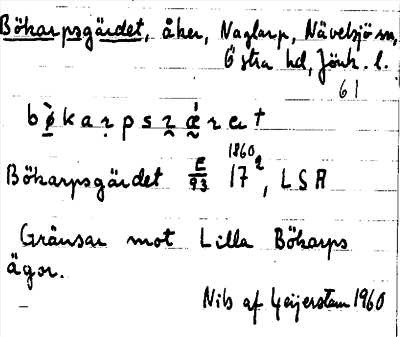 Bökarpsgärdet, åker, Naglarp, Nävelsjö sn,
Östra hd, Jönk. l.
61
Bökarpsgärdet E/93 17², LSA
1860
Gränsar mot Lilla Bökarps
ägor.
Nils af Geijerstam 1960